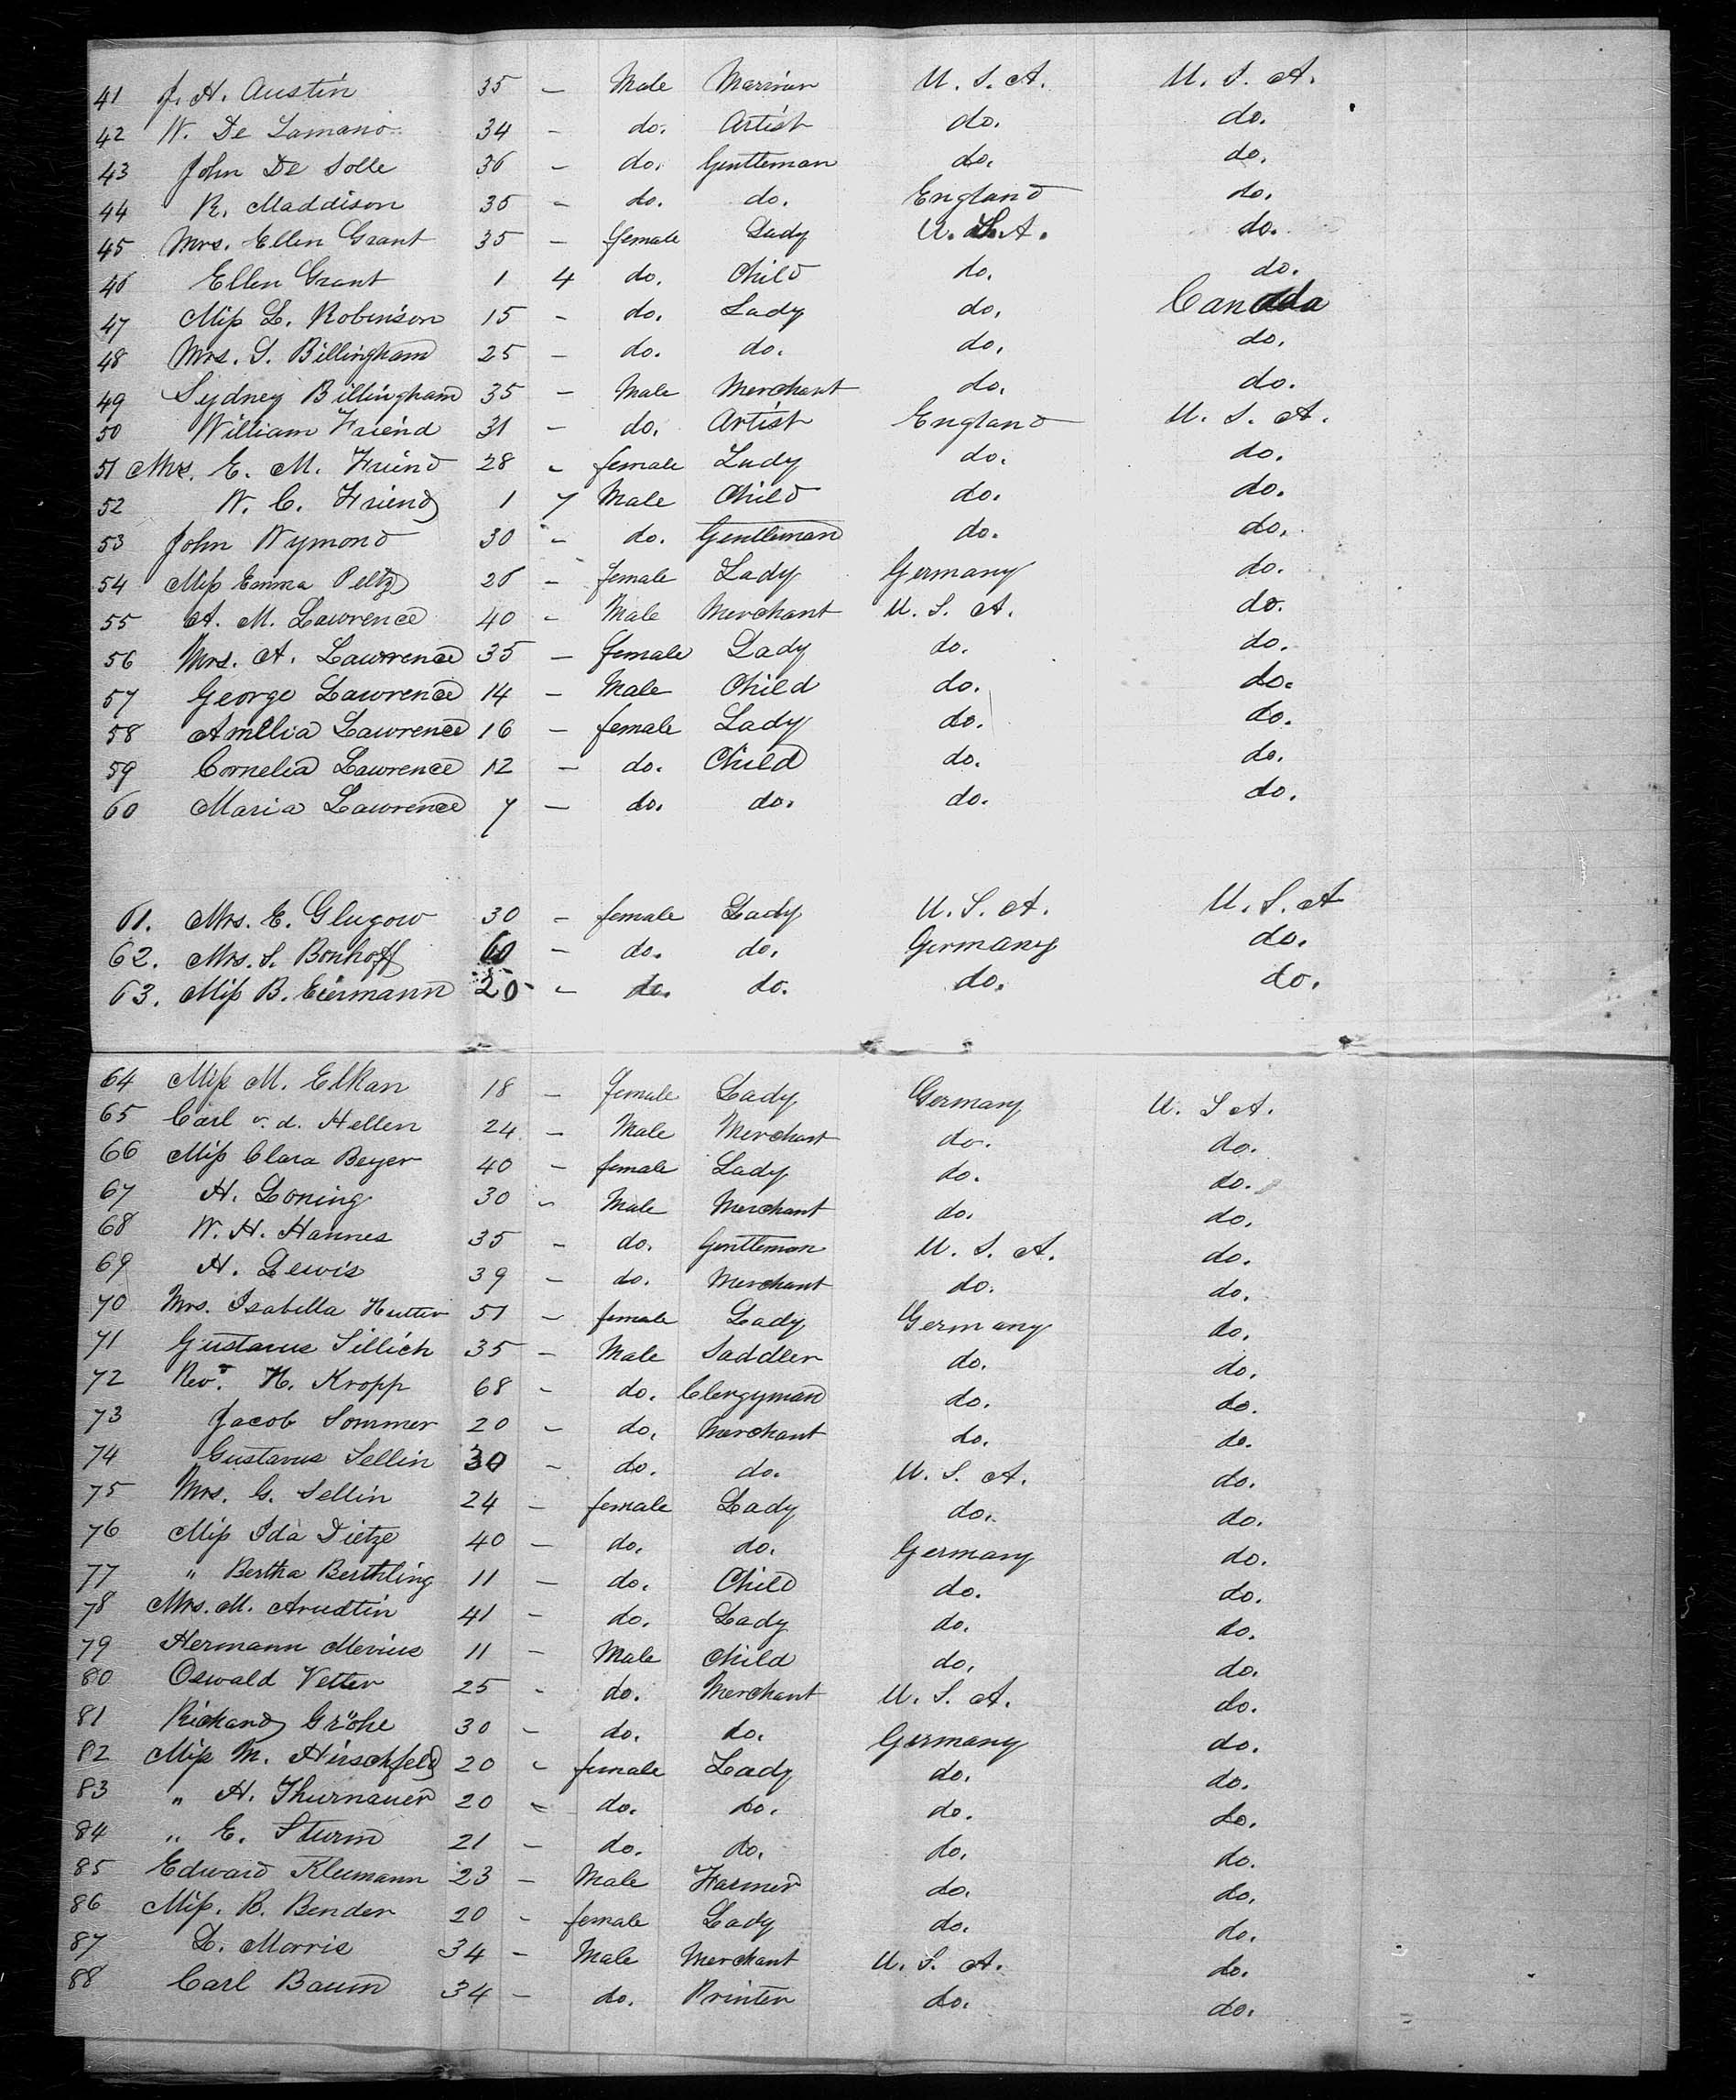 41 J. H. Austin 35 – Male Mariner U. S. A. U. S. A.
42 W. De Lamano 34 – do. Artist do. do.
43 John De Solle 36 – do. Gentleman do. do.
44 R. Maddison 35 – do. do. England do.
45 Mrs. Ellen Grant 35 – female Lady U. S. A. do.
46 Ellen Grant 1 4 do. Child do. do.
47 Miss L. Robinson 15 – do. Lady do. Canada
48 Mrs. S. Billingham 25 – do. do. do. do.
49 Sydney Billingham 35 – Male Merchant do. do.
50 William Friend 31 – do. Artist England U. S. A.
51 Mrs. E. M. Friend 28 – female Lady do. do.
52 W. C. Friend 1 7 Male Child do. do.
53 John Wymond 30 – do. Gentleman do. do.
54 Miss Emma Peltz 26 – female Lady Germany do.
55 A. M. Lawrence 40 – Male Merchant U. S. A. do.
56 Mrs. A. Lawrence 35 – female Lady do. do.
57 George Lawrence 14 – Male Child do. do.
58 Amelia Lawrence 16 – female Lady do. do.
59 Cornelia Lawrence 12 – do. Child do. do.
60 Maria Lawrence 7 – do. do. do. do.
61. Mrs. E. Glugow 30 – female Lady U. S. A. U. S. A
62. Mrs. S. Bonhoff 60 – do. do. Germany do.
63. Miss B. Eiermann 20 – do. do. do. do.
64 Miss M. Elkan 18 – female Lady Germany U. S A.
65 Carl v. d. Hellen 24 – Male Merchant do. do.
66 Miss Clara Beyer 40 – female Lady do. do.
67 H. Loning 30 – Male Merchant do. do.
68 W. H. Hannes 35 – do. Gentleman U. S. A. do.
69 H. Lewis 39 – do. Merchant do. do.
70 Mrs. Isabella Hutter 51 – female Lady Germany do.
71 Gustavus Sillich 35 – Male Saddler do. do.
72 Rev. H. Kropp 68 – do. Clergyman do. do.
73 Jacob Sommer 20 – do. Merchant do. do.
74 Gustavus Sellin 30 – do. do. U. S. A. do.
75 Mrs. G. Sellin 24 – female Lady do. do.
76 Miss Ida Dietze 40 – do. do. Germany do.
77 " Bertha Berthling 11 – do. Child do. do.
78 Mrs. M. Arndtin 41 – do. Lady do. do.
79 Hermann Mevius 11 – Male Child do. do.
80 Oswald Vetter 25 – do. Merchant U. S. A. do.
81 Richard Gröhe 30 – do. do. Germany do.
82 Miss M. Hirschfeld 20 – female Lady do. do.
83 " H. Thurnauer 20 – do. do. do. do.
84 " E. Sturm 21 – do. do. do. do.
85 Edward Kleemann 23 – Male Farmer do. do.
86 Miss. B. Bender 20 – female Lady do. do.
87 L. Morris 34 – Male Merchant U. S. A. do.
88 Carl Baum 34 – do. Printer do. do.